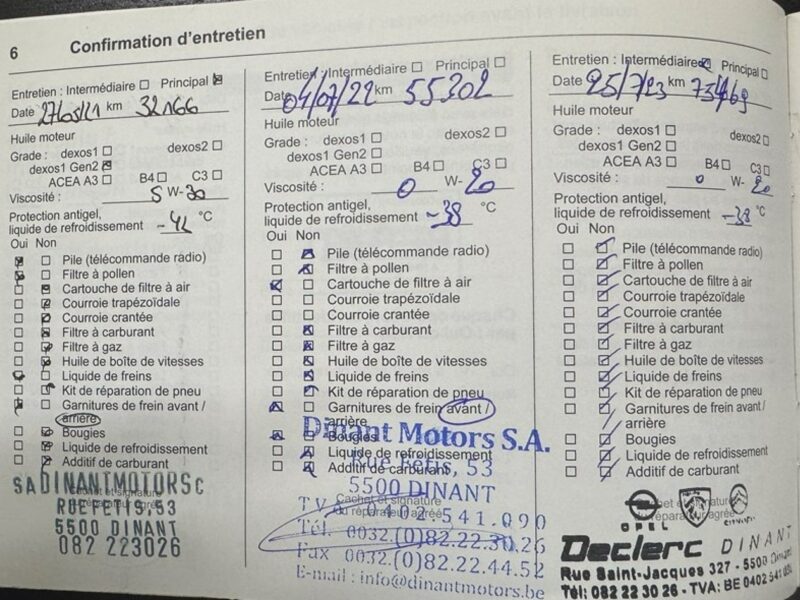 6 Confirmation d'entretien
Entretien : Intermédiaire ☐ Principal ☒
Date 27/05/21 km 32166
Huile moteur
Grade : dexos1 ☐ dexos2 ☐
dexos1 Gen2 ☒
ACEA A3 ☐ B4 ☐ C3 ☐
Viscosité : 5 W- 30
Protection antigel,
liquide de refroidissement -42 °C
Oui Non
☒ ☐ Pile (télécommande radio)
☒ ☐ Filtre à pollen
☐ ☒ Cartouche de filtre à air
☐ ☒ Courroie trapézoïdale
☐ ☒ Courroie crantée
☐ ☒ Filtre à carburant
☐ ☒ Filtre à gaz
☐ ☒ Huile de boîte de vitesses
☒ ☐ Liquide de freins
☐ ☒ Kit de réparation de pneu
☒ ☐ Garnitures de frein avant /
arrière
☐ ☒ Bougies
☐ ☒ Liquide de refroidissement
☐ ☒ Additif de carburant
Cachet et signature
du réparateur agréé
SA DINANTMOTORS
RUE FETIS, 53
5500 DINANT
082 223026
Entretien : Intermédiaire ☐ Principal ☐
Date 04/07/22 km 55302
Huile moteur
Grade : dexos1 ☐ dexos2 ☐
dexos1 Gen2 ☐
ACEA A3 ☐ B4 ☐ C3 ☐
Viscosité : 0 W- 20
Protection antigel,
liquide de refroidissement -38 °C
Oui Non
☐ ☒ Pile (télécommande radio)
☐ ☒ Filtre à pollen
☒ ☐ Cartouche de filtre à air
☐ ☐ Courroie trapézoïdale
☐ ☐ Courroie crantée
☐ ☒ Filtre à carburant
☐ ☒ Filtre à gaz
☐ ☒ Huile de boîte de vitesses
☐ ☒ Liquide de freins
☐ ☒ Kit de réparation de pneu
☒ ☐ Garnitures de frein avant /
arrière
☒ ☐ Bougies
☐ ☒ Liquide de refroidissement
☐ ☒ Additif de carburant
Cachet et signature
du réparateur agréé
Dinant Motors S.A.
Rue Fétis, 53
5500 DINANT
541.090
Tél. 0032.(0)82.22.30.26
Fax 0032.(0)82.22.44.52
E-mail : info@dinantmotors.be
Entretien : Intermédiaire ☒ Principal ☐
Date 25/7/23 km
Huile moteur
Grade : dexos1 ☐ dexos2 ☐
dexos1 Gen2 ☐
ACEA A3 ☐ B4 ☐ C3 ☐
Viscosité : 0 W- 20
Protection antigel,
liquide de refroidissement -38 °C
Oui Non
☐ ☒ Pile (télécommande radio)
☐ ☒ Filtre à pollen
☐ ☒ Cartouche de filtre à air
☐ ☒ Courroie trapézoïdale
☐ ☒ Courroie crantée
☐ ☒ Filtre à carburant
☐ ☒ Filtre à gaz
☐ ☒ Huile de boîte de vitesses
☐ ☒ Liquide de freins
☐ ☒ Kit de réparation de pneu
☐ ☒ Garnitures de frein avant /
arrière
☐ ☒ Bougies
☐ ☒ Liquide de refroidissement
☐ ☒ Additif de carburant
Cachet et signature
du réparateur agréé
OPEL CITROËN
Declerc DINANT
Rue Saint-Jacques 327 - 5500 Dinant
Tél: 082 22 30 26 - TVA: BE 0402 541